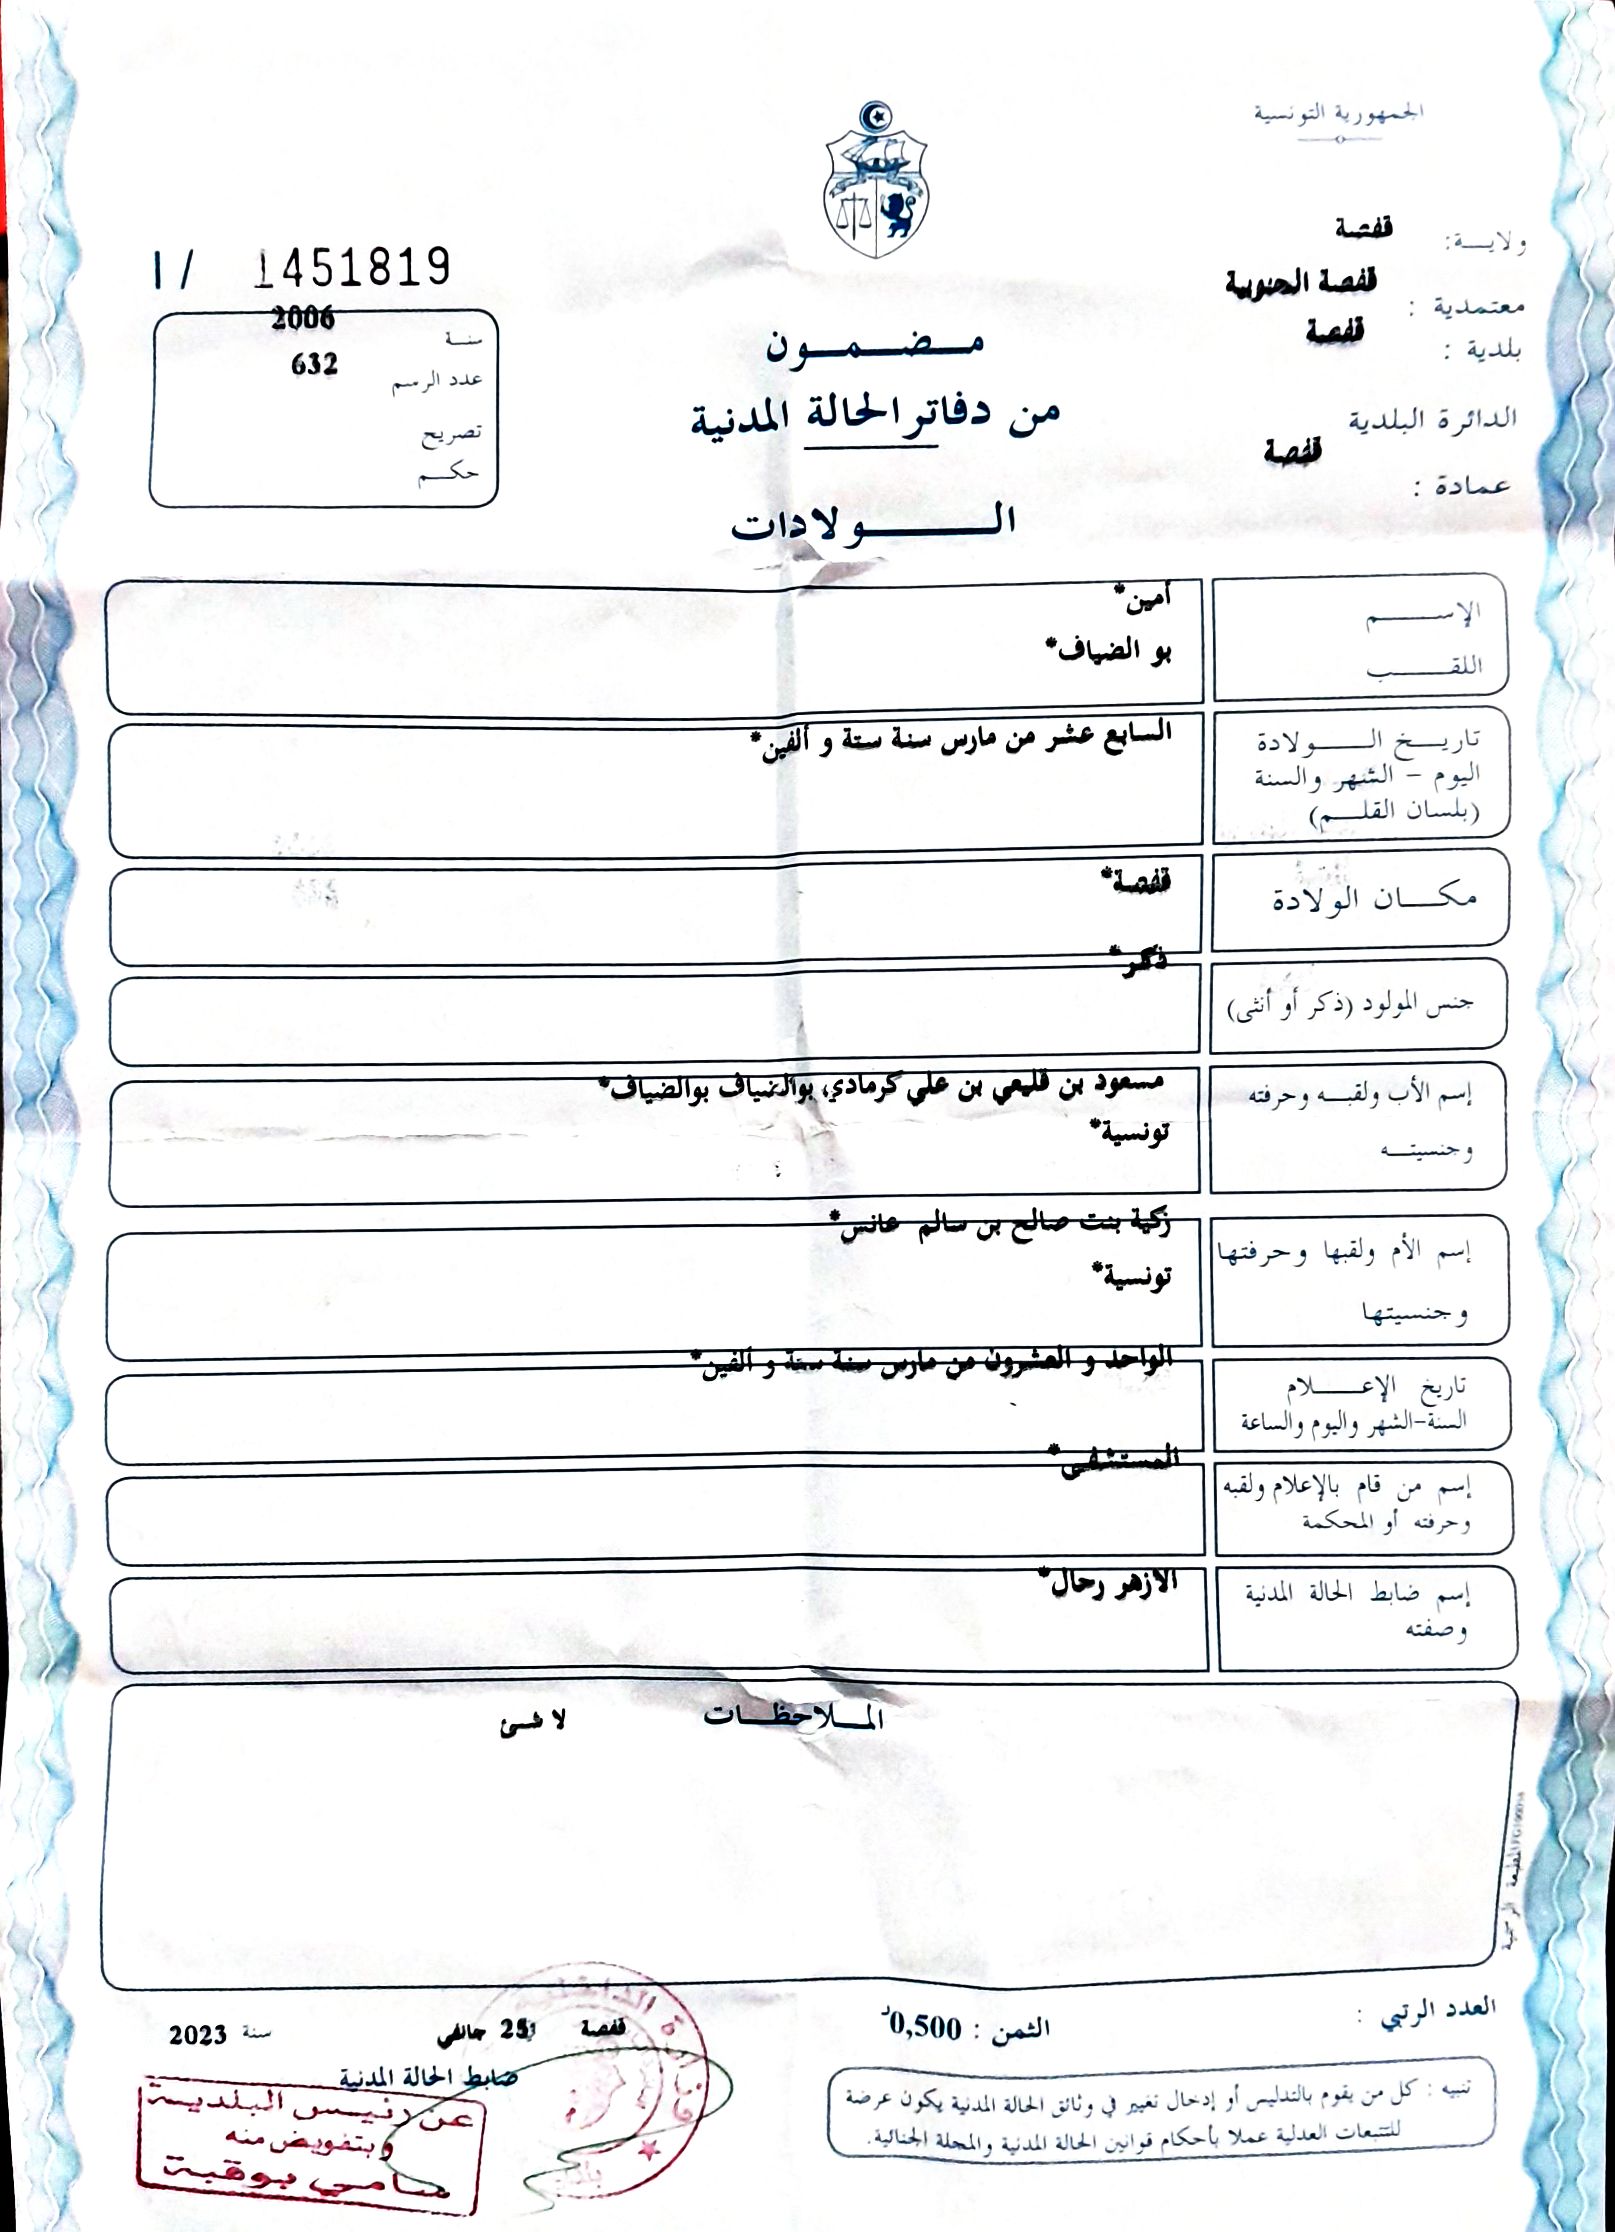 الجمهورية التونسية
ولاية: قفصة
معتمدية : قفصة الجنوبية
بلدية : قفصة
الدائرة البلدية
قفصة
عمادة :
I / 1451819
سنة 2006
عدد الرسم 632
تصريح
حكم
مضمون
من دفاتر الحالة المدنية
الولادات
الإسم أمين*
اللقب بو الضياف*
تاريخ الولادة السابع عشر من مارس سنة ستة و ألفين*
اليوم - الشهر والسنة
(بلسان القلم)
مكان الولادة قفصة*
ذكر*
جنس المولود (ذكر أو أنثى)
إسم الأب ولقبه وحرفته مسعود بن قليعي بن علي كرمادي، بوالضياف بوالضياف*
وجنسيته تونسية*
زكية بنت صالح بن سالم عانس*
إسم الأم ولقبها وحرفتها
وجنسيتها تونسية*
الواحد و العشرون من مارس سنة ستة و ألفين*
تاريخ الإعلام
السنة-الشهر واليوم والساعة
المستشفى*
إسم من قام بالإعلام ولقبه
وحرفته أو المحكمة
إسم ضابط الحالة المدنية الازهر رحال*
وصفته
الملاحظات لا شئ
المطبعة الرسمية
العدد الرتبي :
الثمن : 0,500د
قفصة 25 جانفي سنة 2023
ضابط الحالة المدنية
عن رئيس البلدية
وبتفويض منه
سامي بوقبة
تنبيه : كل من يقوم بالتدليس أو إدخال تغيير في وثائق الحالة المدنية يكون عرضة
للتتبعات العدلية عملا بأحكام قوانين الحالة المدنية والمجلة الجنائية.